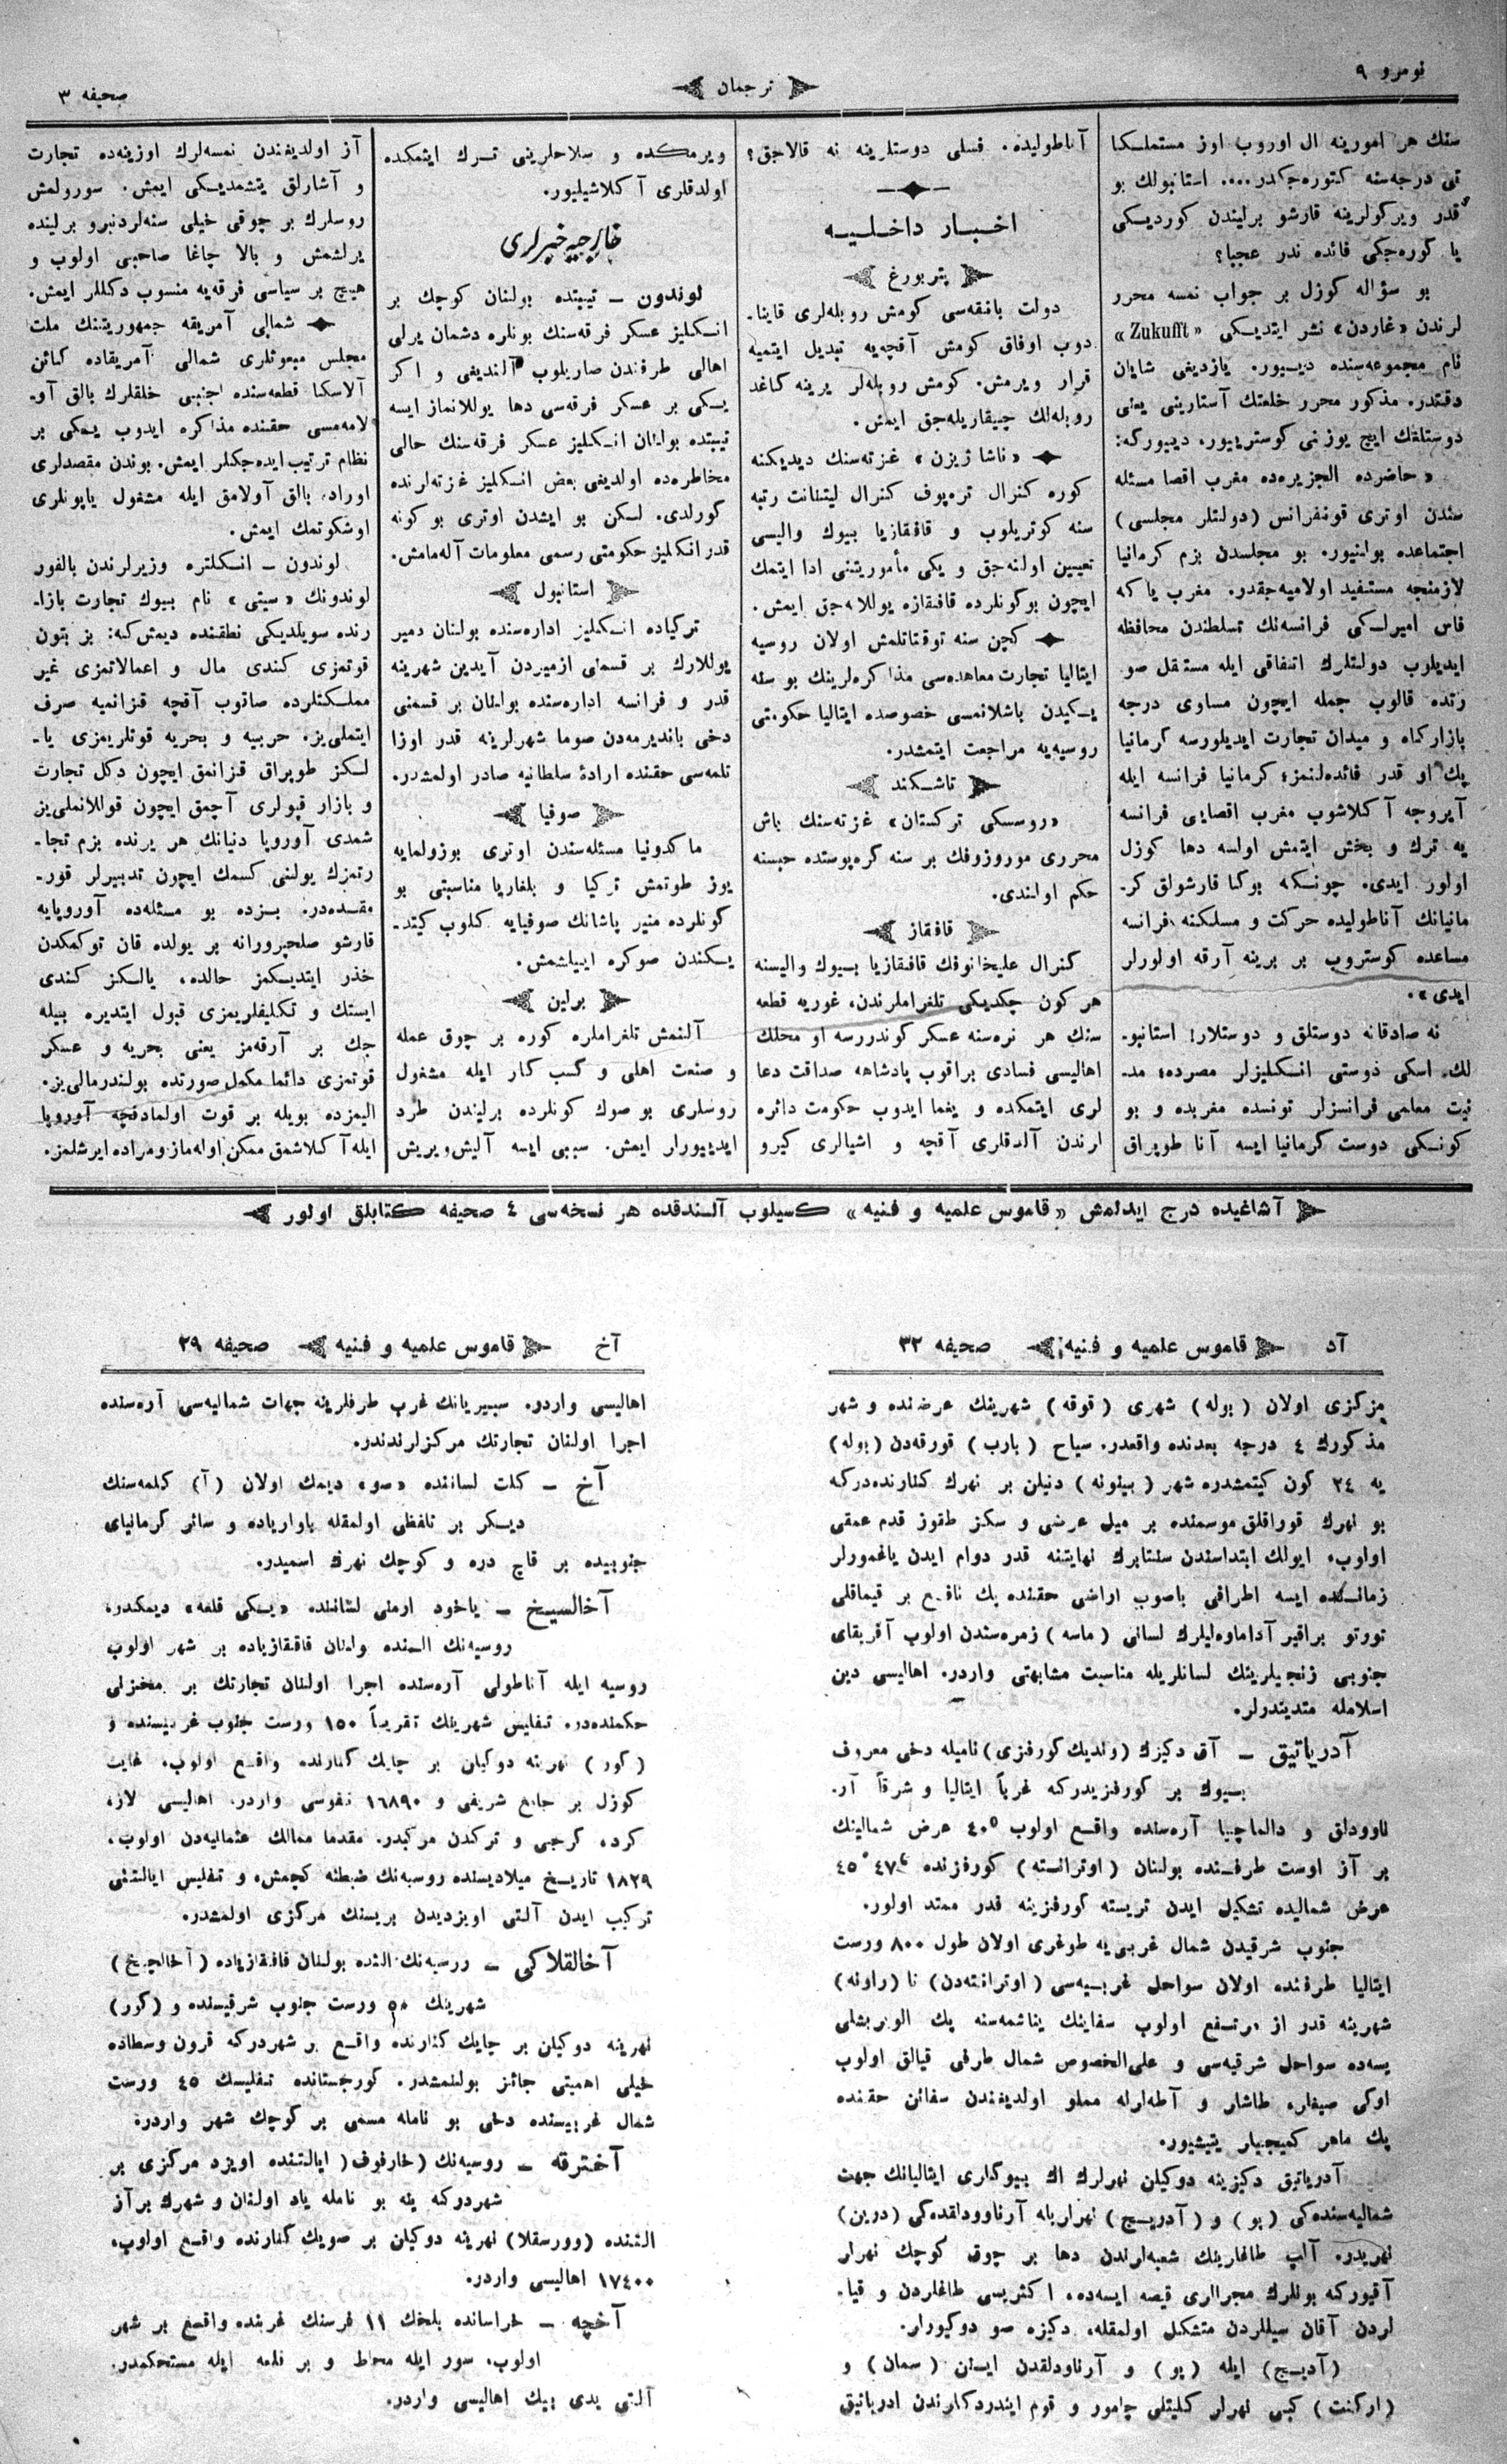 نومرو ٩
ترجمان
صحیفه ٣
سنك هر امورینه ال اوروب اوز مستملكا
تی درجه‌سنه كتوره‌جكدر.... استانبولك بو
قدر ویركولرینه قارشو برلیندن كوردیكی
یا كوره‌جكی فائده ندر عجبا؟
بو سؤاله كوزل بر جواب نمسه محرر
لرندن «غاردن» نشر ایتدیكی «Zukufft»
نام مجموعه‌سنده دییور. یازدیغی شایان
دقتدر. مذكور محرر خلعتك آستارینی یعنی
دوستلغك ایچ یوزنی كوستریپور، دیپوركه:
« حاضرده الجزیره‌ده مغرب اقصا مسئله
سندن اوتری قونفرانس (دولتلر مجلسی)
اجتماعده بولنیور. بو مجلسدن بزم كرمانیا
لازمنجه مستفید اولامیه‌جقدر. مغرب یا كه
فاس امیرلكی فرانسه‌نك تسلطندن محافظه
ایدیلوب دولتلرك اتفاقی ایله مستقل صو
رتده قالوب جمله ایچون مساوی درجه
بازاركاه و میدان تجارت ایدیلورسه كرمانیا
پك او قدر فائده‌لنمز؛ كرمانیا فرانسه ایله
آیروجه آكلاشوب مغرب اقصایی فرانسه
یه ترك و بخش ایتمش اولسه دها كوزل
اولور ایدی. چونكه بوكا قارشولق كر-
مانیانك آناطولیده حركت و مسلكنه فرانسه
مساعده كوستروب بر برینه آرقه اولورلر
ایدی».
نه صادقانه دوستلق و دوستلار! استانبو-
لك. اسكی دوستی انكلیزلر مصرده؛ مد-
نیت معلمی فرانسزلر تونسده مغربده و بو
كونكی دوست كرمانیا ایسه آنا طوپراق
آناطولیده. فسلی دوستلرینه نه قالاجق؟
اخبار داخلیه
پتربورغ
دولت بانقه‌سی كومش روبله‌لری قاینا-
دوب اوفاق كومش آقچه‌یه تبدیل ایتمیه
قرار ویرمش. كومش روبله‌لر یرینه كاغد
روبله‌لك چیقاریله‌جق ایمش.
«ناشا ژیزن» غزته‌سنك دیدیكنه
كوره كنرال تره‌پوف كنرال لیتنانت رتبه
سنه كوتریلوب و قافقازیا بیوك والیسی
تعیین اولنه‌جق و یكی مأموریتنی ادا ایتمك
ایچون بوكونلرده قافقازه یوللانه‌جق ایمش.
كچن سنه توقتاتلمش اولان روسیه
ایتالیا تجارت معاهده‌سی مذاكره‌لرینك بو سنه
یكیدن باشلانمسی خصوصده ایتالیا حكومتی
روسیه‌یه مراجعت ایتمشدر.
تاشكند
«روسسكی تركستان» غزته‌سنك باش
محرری موروزوفك بر سنه كره‌پوستده حبسنه
حكم اولندی.
قافقاز
كنرال علیخانوفك قافقازیا بیوك والیسنه
هر كون چكدیكی تلغراملرندن، غوریه قطعه
سنك هر نره‌سنه عسكر كوندررسه او محلك
اهالیسی فسادی براقوب پادشاهه صداقت دعا
لری ایتمكده و یغما ایدوب حكومت دائره
لرندن آلدقلری آقچه و اشیالری كیرو
ویرمكده و سلاحلرینی ترك ایتمكده
اولدقلری آكلاشیلیور.
خارجیه خبرلری
لوندون – تیبتده بولنان كوچك بر
انكلیز عسكر فرقه‌سنك بونلره دشمان یرلی
اهالی طرفندن صاریلوب آلندیغی و اكر
یكی بر عسكر فرقه‌سی دها یوللانماز ایسه
تیبتده بولنان انكلیز عسكر فرقه‌سنك حالی
مخاطره‌ده اولدیغی بعض انكلیز غزته‌لرنده
كورلدی. لكن بو ایشدن اوتری بو كونه
قدر انكلیز حكومتی رسمی معلومات آله‌مامش.
استانبول
تركیاده انكلیز اداره‌سنده بولنان دمیر
یوللارك بر قسمنی ازمیردن آیدین شهرینه
قدر و فرانسه اداره‌سنده بولنان بر قسمنی
دخی باندیرمه‌دن صوما شهرلرینه قدر اوزا
تلمه‌سی حقنده ارادهٔ سلطانیه صادر اولمشدر.
صوفیا
ماكدونیا مسئله‌سندن اوتری بوزولمایه
یوز طوتمش تركیا و بلغاریا مناسبتی بو
كونلرده منیر پاشانك صوفیایه كلوب كیتد-
یكندن صوكره اییلشمش.
برلین
آلنمش تلغراملره كوره بر چوق عمله
و صنعت اهلی و كسب كار ایله مشغول
روسلری بو صوك كونلرده برلیندن طرد
ایدییورلر ایمش. سببی ایسه آلیش‌ویریش
آز اولدیغندن نمسه‌لرك اوزینه‌ده تجارت
و آشارلق یتشمدیكی ایمش. سورولمش
روسلرك بر چوقی خیلی سنه‌لردنبرو برلینده
یرلشمش و بالا چاغا صاحبی اولوب و
هیچ بر سیاسی فرقه‌یه منسوب دكللر ایمش.
شمالی آمریقه جمهوریتنك ملت
مجلس مبعوثلری شمالی آمریقاده كائن
آلاسكا قطعه‌سنده اجنبی خلقلرك بالق آو-
لامه‌سی حقنده مذاكره ایدوب یكی بر
نظام ترتیب ایده‌جكلر ایمش. بوندن مقصدلری
اوراده بالق آولامق ایله مشغول یاپونلری
اوشكوتمك ایمش.
لوندون – انكلتره وزیرلرندن بالفور
لوندونك «سیتی» نام بیوك تجارت بازا-
رنده سویلدیكی نطقنده دیمش‌كه: بز بتون
قوتمزی كندی مال و اعمالاتمزی غیر
مملكتلرده صاتوب آقچه قزانمیه صرف
ایتملی‌یز. حربیه و بحریه قوتلریمزی یا-
لكز طوپراق قزانمق ایچون دكل تجارت
و بازار قپولری آچمق ایچون قوللانملی‌یز
شمدی آوروپا دنیانك هر یرنده بزم تجا-
رتمزك یولنی كسمك ایچون تدبیرلر قور-
مقده‌در. بزده بو مسئله‌ده آوروپایه
قارشو صلحپرورانه بر یولده قان توكمكدن
حذر ایتدیكمز حالده، یالكز كندی
ایستك و تكلیفلریمزی قبول ایتدیره بیله
جك بر آرقه‌مز یعنی بحریه و عسكر
قوتمزی دائما مكمل صورتده بولندرمالی‌یز.
الیمزده بویله بر قوت اولمادقچه آوروپا
ایله آكلاشمق ممكن اوله‌ماز و مراده ایرشلمز.
آشاغیده درج ایدلمش «قاموس علمیه و فنیه» كسیلوب آلندقده هر نسخه‌سی ٤ صحیفه كتابلق اولور
آد قاموس علمیه و فنیه صحیفه ٣٢
مركزی اولان (یوله) شهری (قوقه) شهرینك عرضنده و شهر
مذكورك ٤ درجه بعدنده واقعدر. سیاح (بارب) قورقه‌دن (یوله)
یه ٢٤ كون كیتمشدر. شهر (بینونه) دنیلن بر نهرك كنارنده‌دركه
بو نهرك قوراقلق موسمنده بر میل عرضی و سكز طقوز قدم عمقی
اولوب، ایولك ابتداسندن سنتابرك نهایتنه قدر دوام ایدن یاغمورلر
زمانـنده ایسه اطرافی باصوب اراضی حقنده پك نافع بر قیماقلی
تورتو براقیر. آداماوه‌لیلرك لسانی (ماسه) زمره‌سندن اولوب آفریقای
جنوبی زنجیلرینك لسانلریله مناسبت مشابهتی واردر. اهالیسی دین
اسلامله متدیندرلر.
آدریاتیق – آق دكیزك (وندیك كورفزی) نامیله دخی معروف
بیوك بر كورفزیدركه غرباً ایتالیا و شرقاً آر-
ناوودلق و دالماچیا آره‌سنده واقع اولوب ٤٠° عرض شمالینك
بر آز اوست طرفنده بولنان (اوترانسته) كورفزنده ٤٧´ ٤٥°
عرض شمالیده تشكیل ایدن تریسته كورفزینه قدر ممتد اولور.
جنوب شرقیدن شمال غربی‌یه طوغری اولان طول ٨٠٠ ورست
ایتالیا طرفنده اولان سواحل غربیه‌سی (اوترانته‌دن) تا (راونه)
شهرینه قدر از مرتفع اولوب سفاینك یناشمه‌سنه پك الویریشلی
یسه‌ده سواحل شرقیه‌سی و علی‌الخصوص شمال طرفی قیالق اولوب
اوكی صیغلره طاشلر و آطه‌لرله مملو اولدیغندن سفائن حقنده
پك ماهر كمیجیلر یتیشیور.
آدریاتیق دكیزینه دوكیلن نهرلرك اك بیوكلری ایتالیانك جهت
شمالیه‌سنده‌كی (پو) و (آدیج) نهرلریله آرناوودلقده‌كی (درین)
نهریدر. آلپ طاغلرینك شعبه‌لرندن دها بر چوق كوچك نهرلر
آقیوركه بونلرك مجرالری قیصه ایسه‌ده، اكثریسی طاغلردن و قیا-
لردن آقان سیللردن متشكل اولمقله، دكیزه صو دوكیورلر.
(آدیج) ایله (پو) و آرناودلقدن اینن (سمان) و
(ارگنت) كبی نهرلر كلیتلی چامور و قوم ایندردكلرندن ادریاتیق
آخ قاموس علمیه و فنیه صحیفه ٢٩
اهالیسی واردر. سیبریانك غرب طرفلرینه جهات شمالیه‌سی آره‌سنده
اجرا اولنان تجارتك مركزلرندندر.
آخ – كلت لساننده «صو» دیمك اولان (آ) كلمه‌سنك
دیكر بر تلفظی اولمقله باواریاده و سائر كرمانیای
جنوبیده بر قاچ دره و كوچك نهرك اسمیدر.
آخالسیخ – یاخود ارمنی لساننده «یكی قلعه» دیمكدر،
روسیه‌نك النده بولنان قافقازیاده بر شهر اولوب
روسیه ایله آناطولی آره‌سنده اجرا اولنان تجارتك بر مخزنلی
حكمنده‌در. تفلیس شهرینك تقریباً ١٥٠ ورست جنوب غربیسنده و
(كور) نهرینه دوكیلن بر چایك كنارنده واقع اولوب، غایت
كوزل بر جامع شریفی و ١٦٨٩٠ نفوسی واردر. اهالیسی لاز،
كرد، كرجی و تركدن مركبدر. مقدما ممالك عثمانیه‌دن اولوب،
١٨٢٩ تاریخ میلادیسنده روسیه‌نك ضبطنه كچمش، و تفلیس ایالتنی
تركیب ایدن آلتی اویزدیدن بریسنك مركزی اولمشدر.
آخالقلاكی – روسیه‌نك النده بولنان قافقازیاده (آخالچیخ)
شهرینك ٥٠ ورست جنوب شرقیسنده و (كور)
نهرینه دوكیلن بر چایك كنارنده واقع بر شهردركه قرون وسطاده
خیلی اهمیتی جائز بولنمشدر. كورجستانده تفلیسك ٤٥ ورست
شمال غربیسنده دخی بو نامله مسمی بر كوچك شهر واردر.
آخترقه – روسیه‌نك (خارقوف) ایالتنده اویزد مركزی بر
شهردركه ینه بو نامله یاد اولنان و شهرك بر آز
التنده (وورسقلا) نهرینه دوكیلن بر صویك كنارنده واقع اولوب،
١٧٤٠٠ اهالیسی واردر.
آخچه – خراسانده بلخك ١١ فرسنك غربنده واقع بر شهر
اولوب، سور ایله محاط و بر قلعه ایله مستحكمدر.
آلتی یدی بیك اهالیسی واردر.